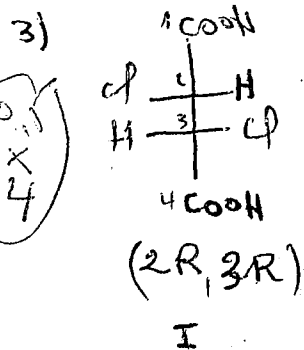 3)
1 COOH
Cl 2 H
H 3 Cl
4 COOH
(2R, 3R)
I
4